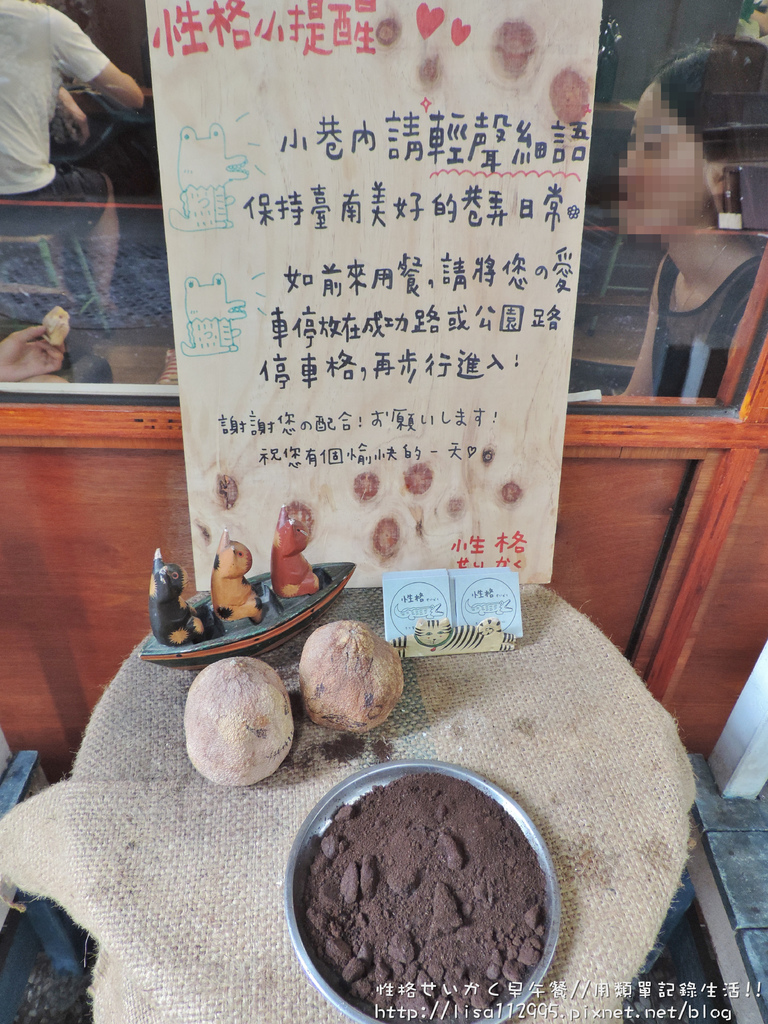 性格小提醒
小巷內請輕聲細語
保持臺南美好的巷弄日常
如前來用餐,請將您の愛
車停放在成功路或公園路
停車格,再步行進入!
謝謝您の配合!お願いします!
祝您有個愉快的一天♡
性格
せいかく
性格
性格
性格せいかく早午餐//用類單記錄生活!!
http://lisa112995.pixnet.net/blog